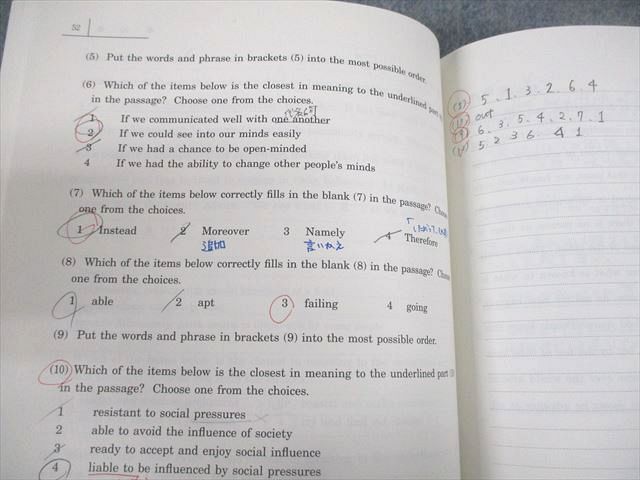 52
(5) Put the words and phrase in brackets (5) into the most possible order.
(6) Which of the items below is the closest in meaning to the underlined part
in the passage? Choose one from the choices.
1 If we communicated well with one another
2 If we could see into our minds easily
3 If we had a chance to be open-minded
4 If we had the ability to change other people's minds
(7) Which of the items below correctly fills in the blank (7) in the passage?
one from the choices.
1 Instead 2 Moreover 3 Namely 4 Therefore
追加 言いかえ
(8) Which of the items below correctly fills in the blank (8) in the passage?
one from the choices.
1 able 2 apt 3 failing 4 going
(9) Put the words and phrase in brackets (9) into the most possible order.
(10) Which of the items below is the closest in meaning to the underlined part
in the passage? Choose one from the choices.
1 resistant to social pressures
2 able to avoid the influence of society
3 ready to accept and enjoy social influence
4 liable to be influenced by social pressures
5. 1. 3. 2. 6. 4
out
6. 3. 5. 4. 2. 7. 1
5. 2 3 6. 4 1